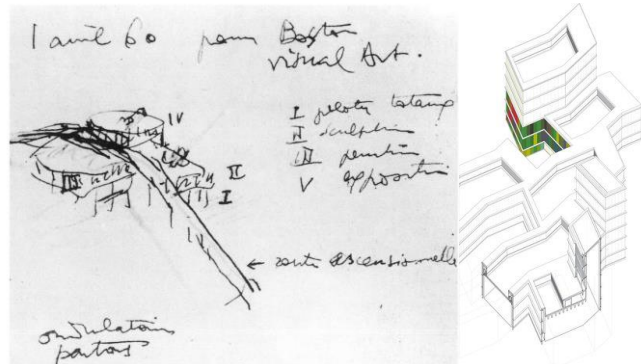 1 avril 60 pour Boston
visual Art.
IV
I pilotis
II sculpture
III
V exposition
III
II
I
← route ascensionnelle
ondulatoires
partout